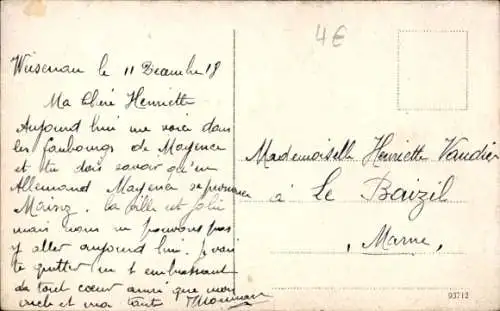 4€
Wiesenau le 11 Decembre 18
Ma Chère Henriette
Aujourd hui me voici dans
les faubourgs de Mayence
et tu dois savoir qu'en
Allemand Mayence se prononce
Mainz. la ville est jolie
mais nous ne pouvons pas
y aller aujourd hui. je vais
te quitter en t embrassant
de tout cœur ainsi que mon
oncle et ma tante
Mademoiselle Henriette Vaudier
à Le Baizil
(Marne)
93712